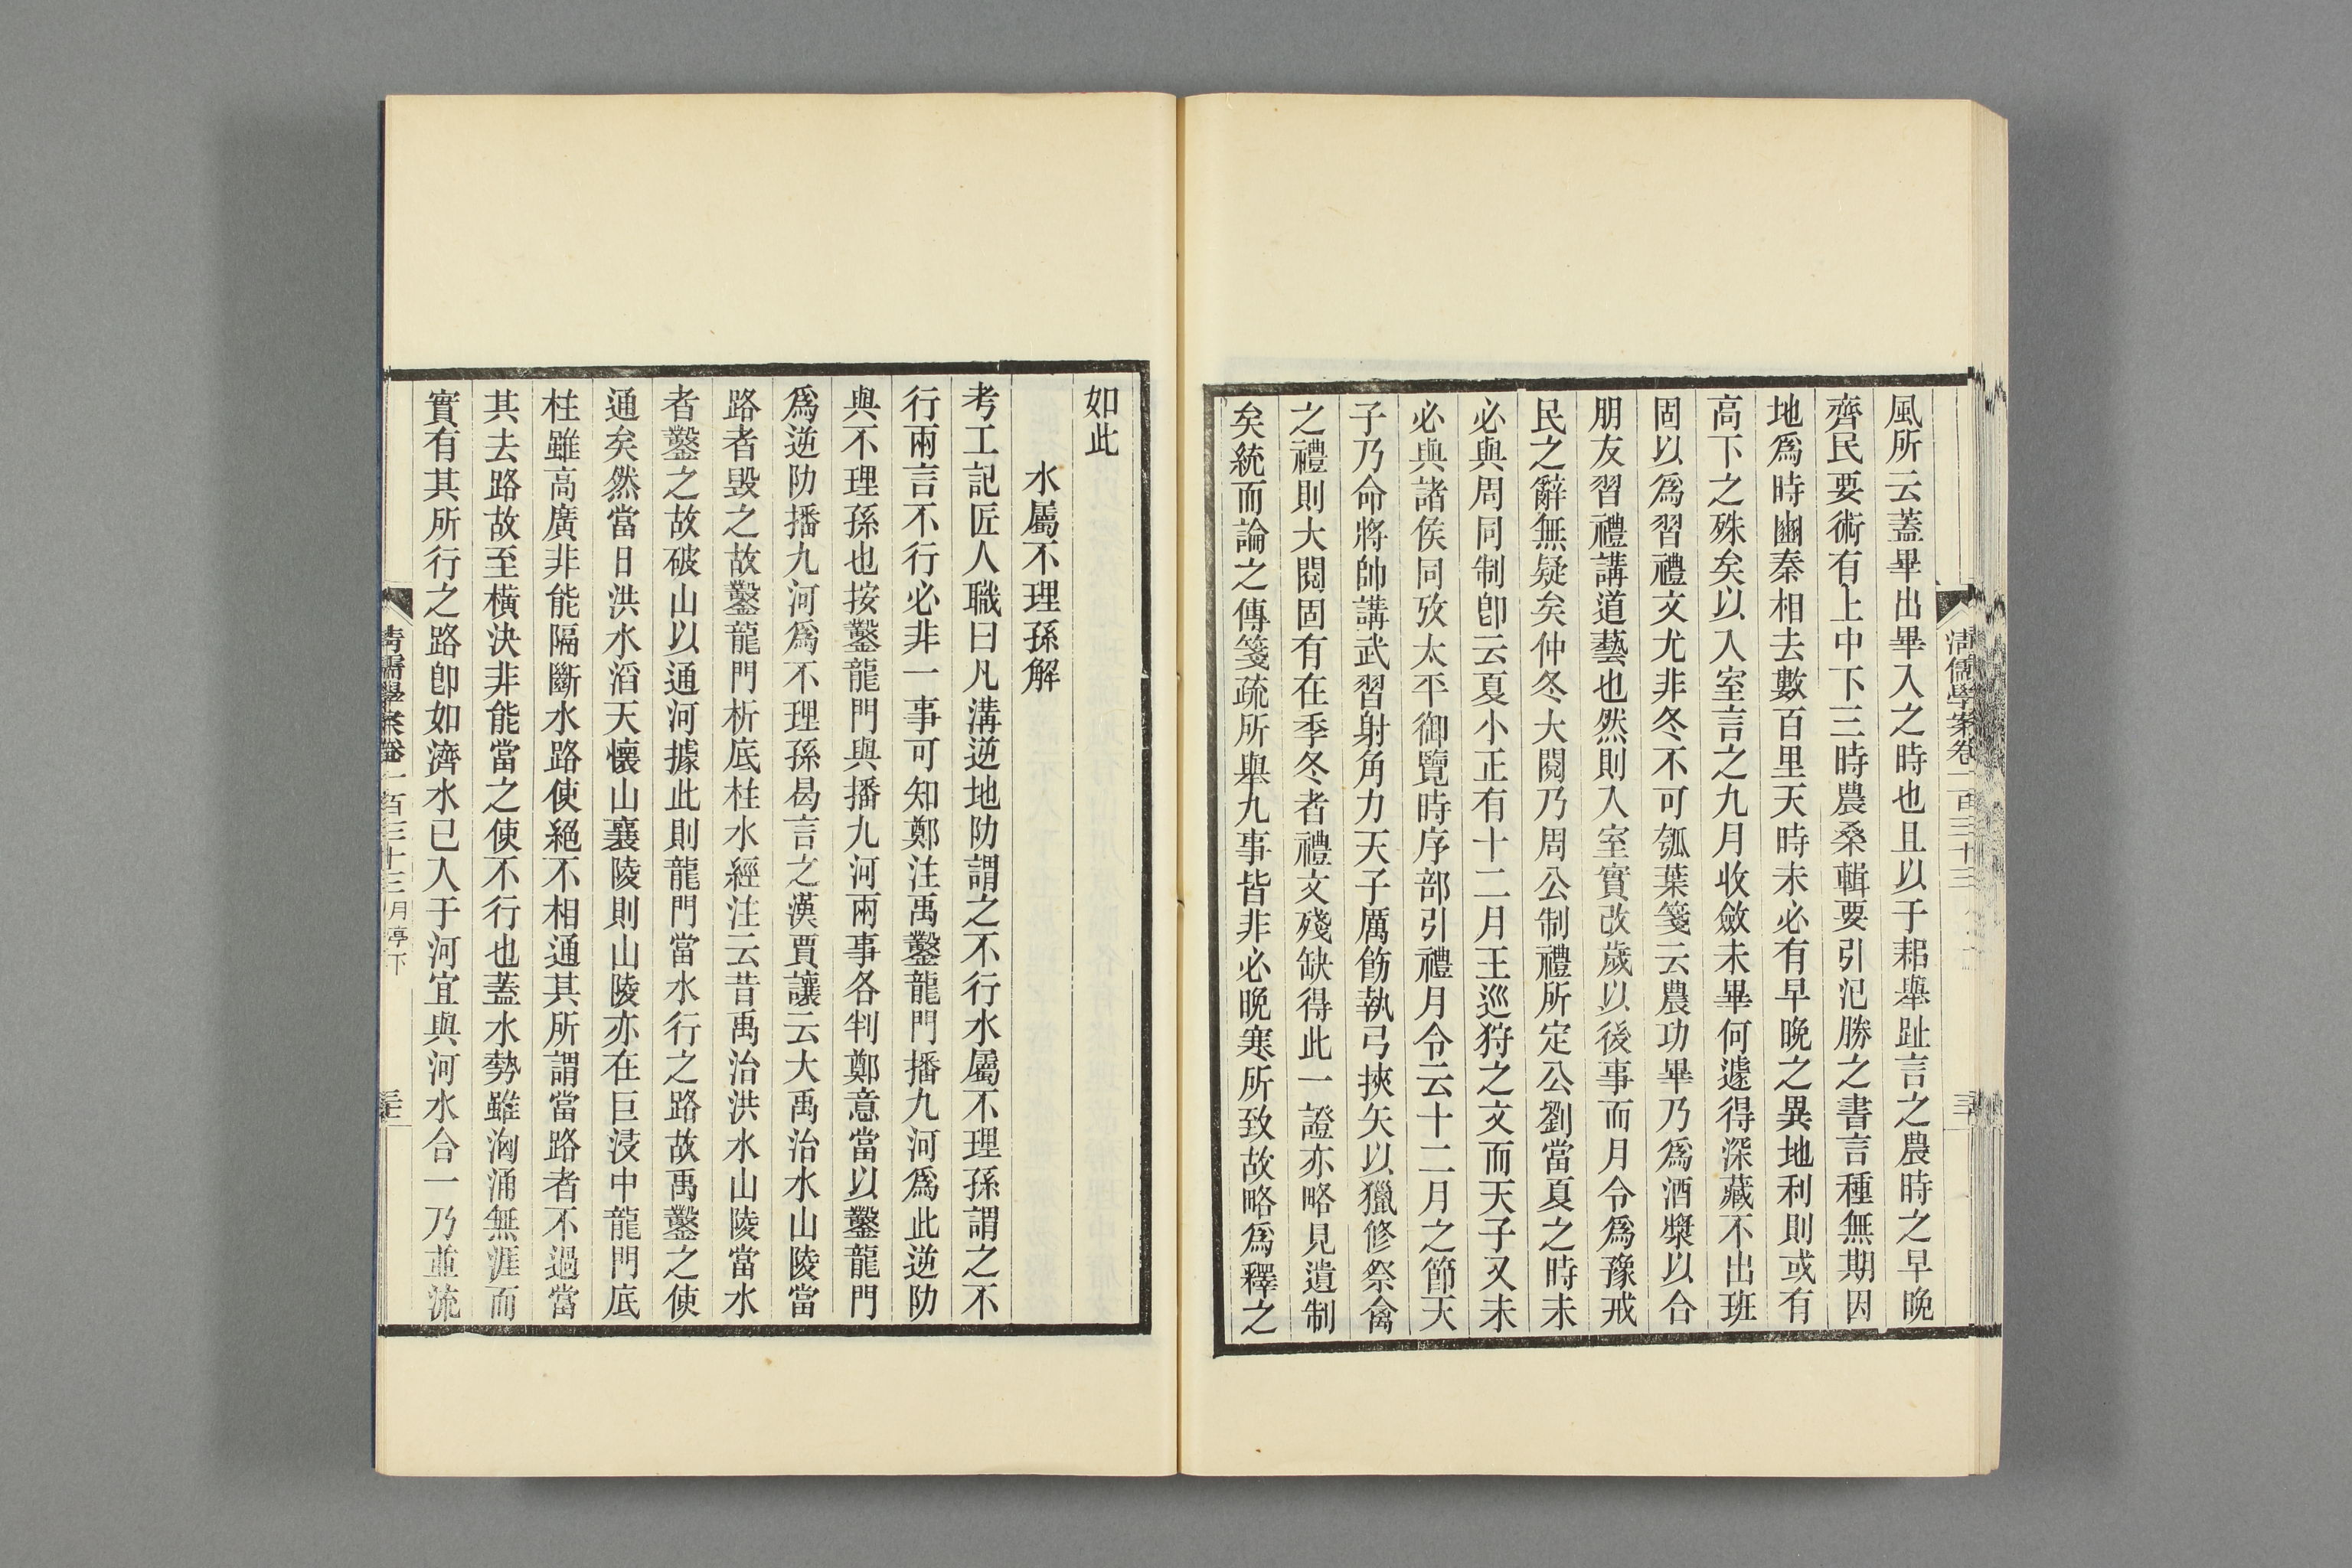 風所云蓋畢出畢入之時也且以于耜舉趾言之農時之早晚
齊民要術有上中下三時農桑輯要引氾勝之書言種無期因
地爲時豳秦相去數百里天時未必有早晚之異地利則或有
高下之殊矣以入室言之九月收斂未畢何遽得深藏不出班
固以爲習禮文尤非冬不可瓠葉箋云農功畢乃爲酒漿以合
朋友習禮講道藝也然則入室實改歲以後事而月令爲豫戒
民之辭無疑矣仲冬大閱乃周公制禮所定公劉當夏之時未
必與周同制卽云夏小正有十二月王巡狩之文而天子又未
必與諸侯同攷太平御覽時序部引禮月令云十二月之節天
子乃命將帥講武習射角力天子厲飭執弓挾矢以獵修祭禽
之禮則大閱固有在季冬者禮文殘缺得此一證亦略見遺制
矣統而論之傳箋疏所舉九事皆非必晚寒所致故略爲釋之
清儒學案卷一百三十三
如此
水屬不理孫解
考工記匠人職曰凡溝逆地阞謂之不行水屬不理孫謂之不
行兩言不行必非一事可知鄭注禹鑿龍門播九河爲此逆阞
與不理孫也按鑿龍門與播九河兩事各判鄭意當以鑿龍門
爲逆阞播九河爲不理孫曷言之漢賈讓云大禹治水山陵當
路者毀之故鑿龍門析底柱水經注云昔禹治洪水山陵當水
者鑿之故破山以通河據此則龍門當水行之路故禹鑿之使
通矣然當日洪水滔天懷山襄陵則山陵亦在巨浸中龍門底
柱雖高廣非能隔斷水路使絕不相通其所謂當路者不過當
其去路故至橫決非能當之使不行也蓋水勢雖洶涌無涯而
實有其所行之路卽如濟水已入于河宜與河水合一乃並流
清儒學案卷一百三十三 月亭下